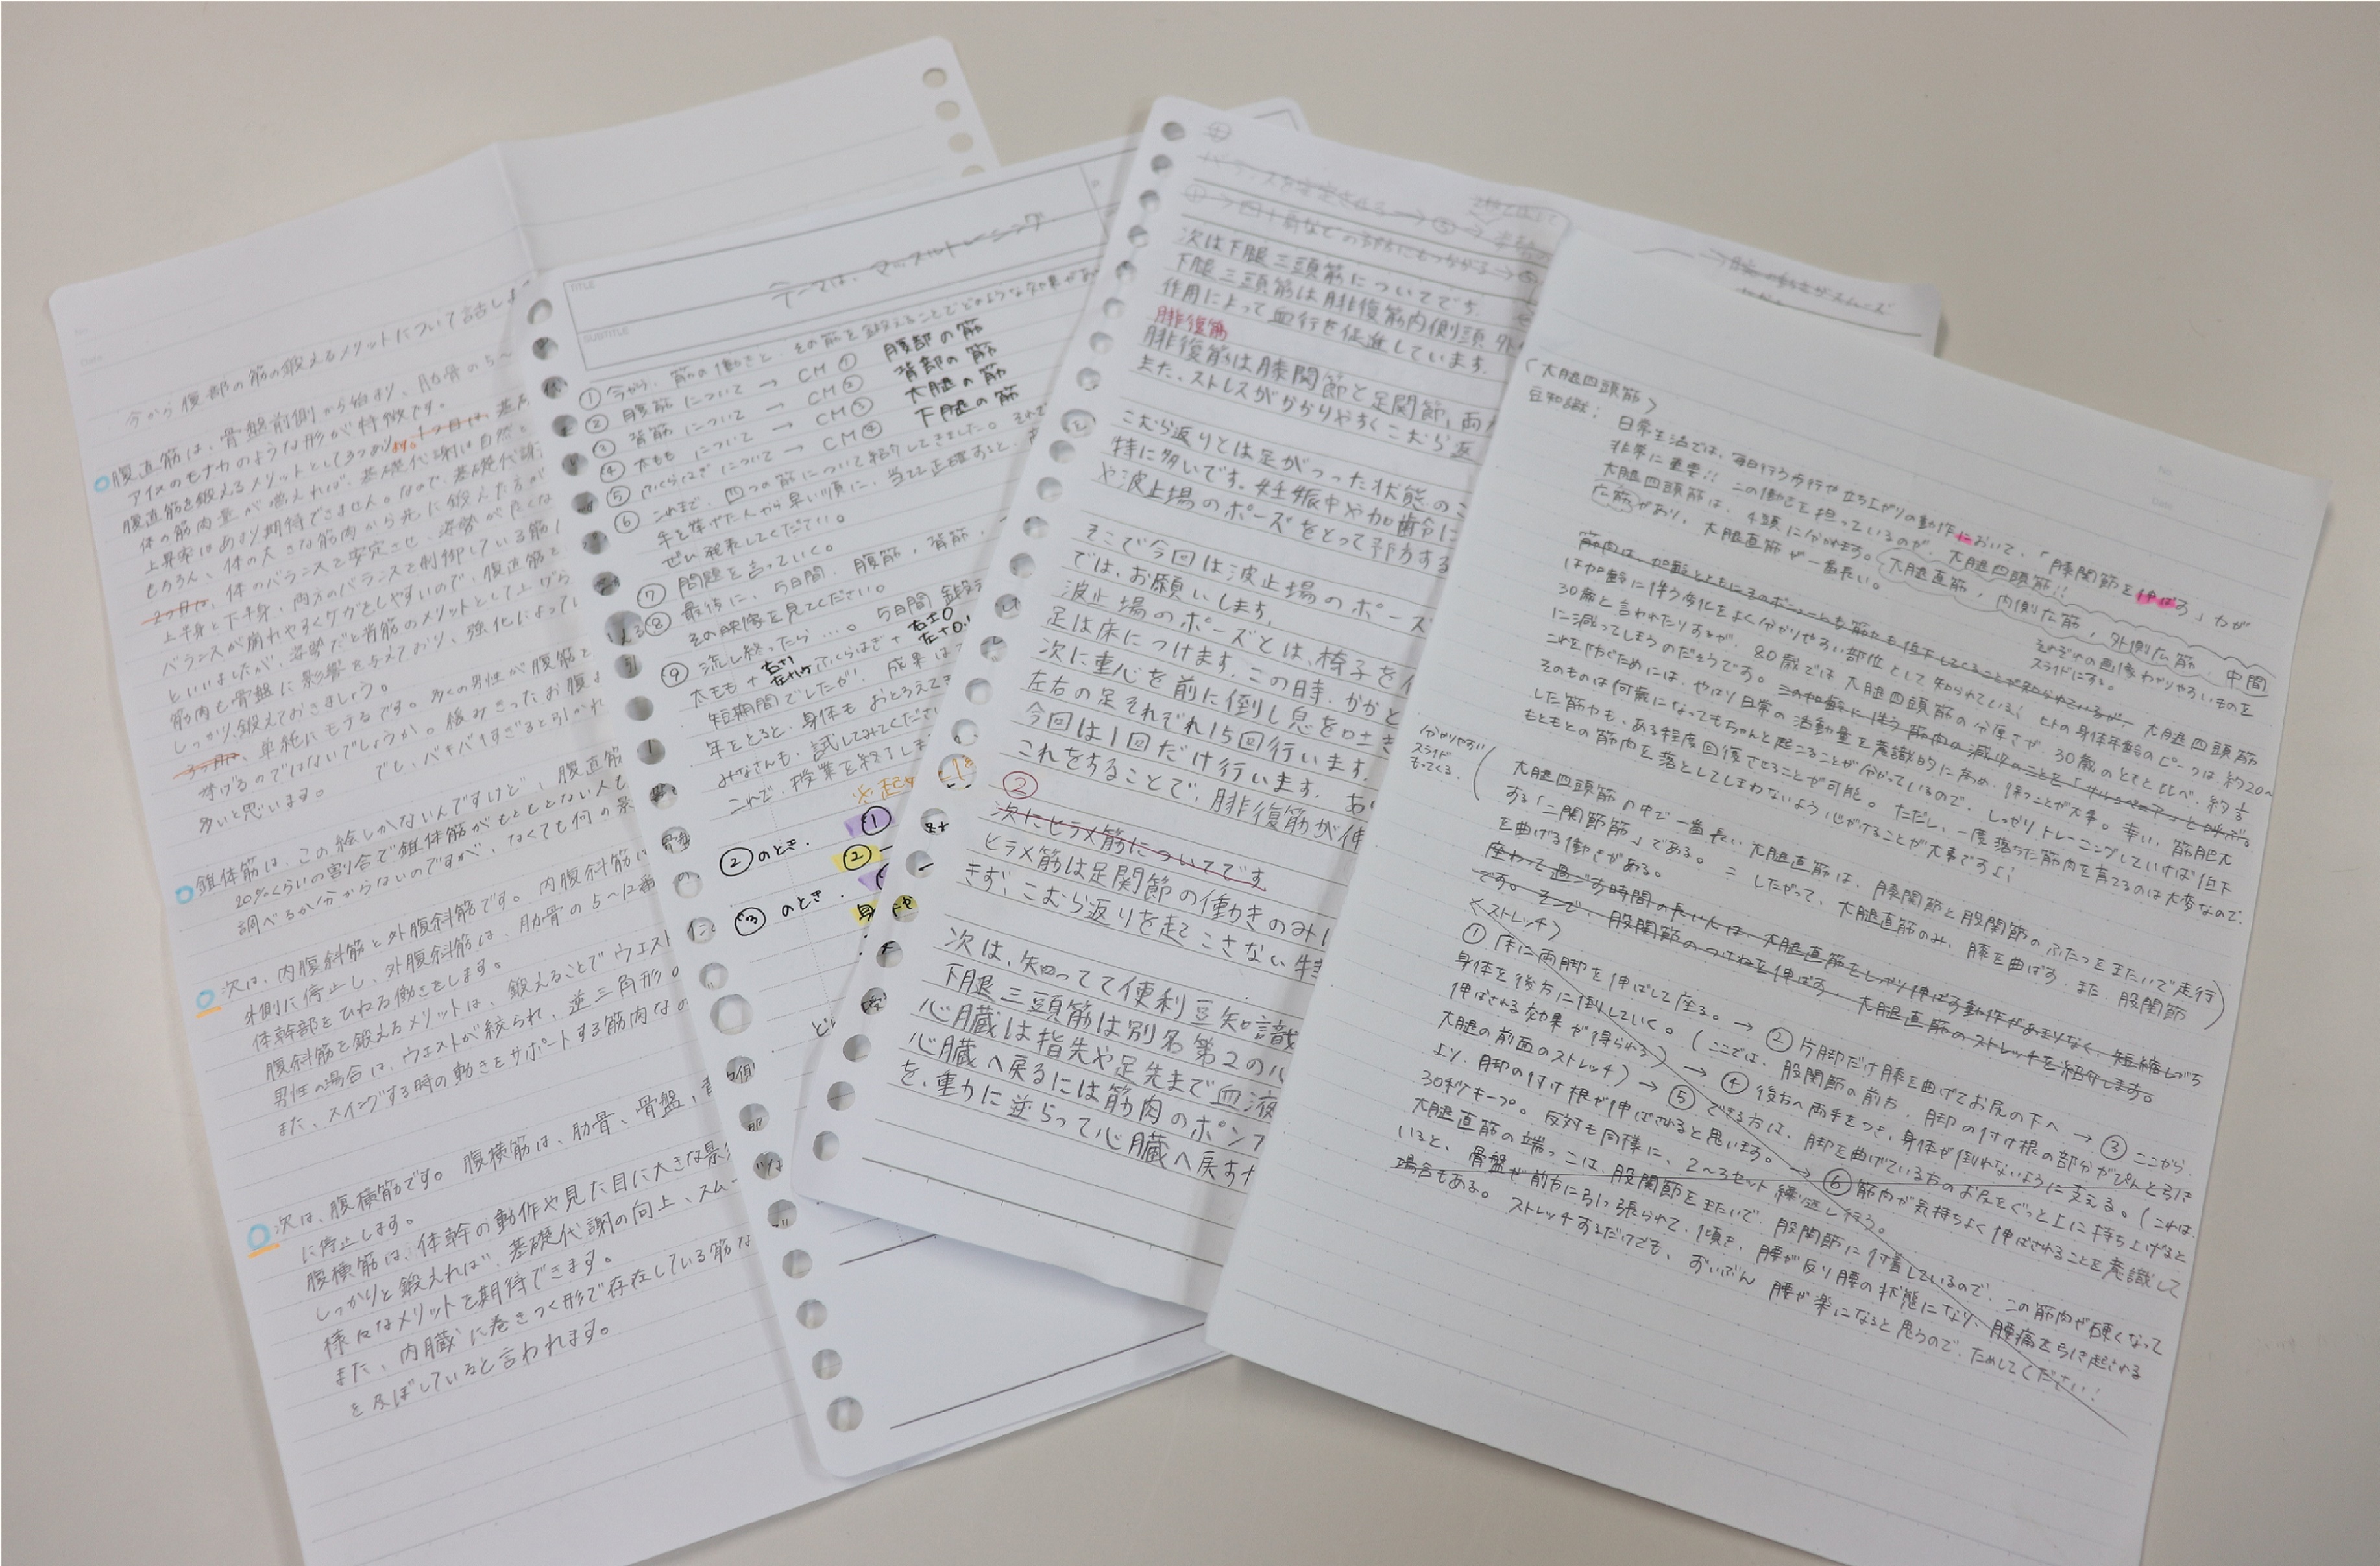 今から腹部の筋の鍛えるメリットについて話しま
○腹直筋は、骨盤前側から始まり、肋骨の5〜
アイスのモナカのような形が特徴です。
腹直筋を鍛えるメリットとして3つあります。1つ目は、基礎
体の筋肉量が増えれば、基礎代謝は自然と
上昇率はあまり期待できません。なので、基礎代謝
もちろん、体の大きな筋肉から先に鍛えた方が
2つ目は、体のバランスを安定させ、姿勢が良くな
上半身と下半身、両方のバランスを制御している筋
バランスが崩れやすくケガをしやすいので、腹直筋を
といいましたが、姿勢だと背筋のメリットとして上げら
筋肉も骨盤に影響を与えており、強化によってい
しっかり鍛えておきましょう。
3つ目は、単純にモテるです。多くの男性が腹筋と
挙げるのではないでしょうか。緩みきったお腹よ
でも、バキバキすぎると引かれ
多いと思います。
○錐体筋は、この絵しかないんですけど、腹直筋
20%くらいの割合で錐体筋がもともとない人も
調べるか分からないのですが、なくても何の景
○次は、内腹斜筋と外腹斜筋です。内腹斜筋は、骨盤
外側に停止し、外腹斜筋は、肋骨の5〜12番の
体幹部をひねる働きをします。
腹斜筋を鍛えるメリットは、鍛えることでウエスト
男性の場合は、ウエストが絞られ、逆三角形の
また、スイングする時の動きをサポートする筋肉なの
○次は、腹横筋です。腹横筋は、肋骨、骨盤、背
に停止します。
腹横筋は、体幹の動作や見た目に大きな景
しっかりと鍛えれば、基礎代謝の向上、スムー
様々なメリットを期待できます。
また、内臓に巻きつく形で存在している筋な
を及ぼしていると言われます。
TITLE
テーマは、マッスルトレーニング
SUBTITLE
①今から、筋の働きと、その筋を鍛えることでどのような効果があ
②腹筋について → CM① 腹部の筋
③背筋について → CM② 背部の筋
④太ももについて → CM③ 大腿の筋
⑤ふくらはぎについて → CM④ 下腿の筋
⑥これまで、四つの筋について紹介してきました。それで
手を挙げた人から早い順に、当てて正確すると、
ぜひ発表してください。
⑦問題を言っていく。
⑧最後に、5日間、腹筋、背筋、
その映像を見てください。
⑨流し終ったら…。5日間鍛え
太もも+ ふくらはぎ+ 右±0
左+0.
短期間でしたが、成果は
年をとると、身体もおとろえてき
みなさんも、試してみてください
これで、授業を終了しま
②のとき. ①
②
③のとき.
次は下腿三頭筋についてです
下腿三頭筋は腓復筋内側頭 外
作用によって血行を促進しています.
腓復筋
腓復筋は膝関節と足関節,両方
また、ストレスがかかりやすくこむら返
こむら返りとは足がつった状態のこ
特に多いです。妊娠中や加齢に
や波止場のポーズをとって予防する
そこで今回は波止場のポーズ
では、お願いします.
波止場のポーズとは、椅子を
足は床につけます.この時.かかと
次に重心を前に倒し息を吐き
左右の足それぞれ15回行います.
今回は1回だけ行います. お
これをすることで、腓復筋が伸
②
次にヒラメ筋についてです
ヒラメ筋は足関節の働きのみに
きず、こむら返りを起こさない特
次は、知ってて便利豆知識
下腿三頭筋は別名第2の心
心臓は指先や足先まで血液
心臓へ戻るには筋肉のポンプ
を、重力に逆らって心臓へ戻すた
〈大腿四頭筋〉
豆知識: 日常生活では、毎日行う歩行や立ち上がりの動作において、「膝関節を伸ばす」力が
非常に重要!! この働きを担っているのが、大腿四頭筋!!
大腿四頭筋は、4頭に分かれます。(大腿直筋, 内側広筋, 外側広筋, 中間
広筋)があり、大腿直筋が一番長い。
それぞれの画像わかりやすいものを
スライドにする。
筋肉は、加齢とともにそのボリュームも筋力も低下してくることが知られているが、大腿四頭筋
は加齢に伴う変化をよく分かりやすい部位として知られている。ヒトの身体年齢のピークは、約20〜
30歳と言われたりするが、80歳では大腿四頭筋の分厚さが、30歳のときと比べ、約半
に減ってしまうのだそうです。この加齢に伴う筋肉の減少のことを「サルコペニア」と呼ぶ。
これを防ぐためには、やはり日常の活動量を意識的に高め、保つことが大事。幸い、筋肥大
そのものは何歳になってもちゃんと起こることが分かっているので、しっかりトレーニングしていけば低下
した筋力も、ある程度回復させることが可能。ただし、一度落ちた筋肉を育てるのは大変なので、
もともとの筋肉を落としてしまわないよう心がけることが大事ですよ!
分かりやすい
スライド
もってくる.
大腿四頭筋の中で一番長い大腿直筋は、膝関節と股関節のふたつをまたいで走行
する「二関節筋」である。= したがって、大腿直筋のみ、膝を曲ばす.また、股関節
を曲げる働きがある。
座わって過ごす時間の長い人は、大腿直筋をしっかり伸ばす動作があまりなく、短縮しがち
です。そこで、股関節のつけねを伸ばす、大腿直筋のストレッチを紹介します。
〈ストレッチ〉
①床に両脚を伸ばして座る。→ ②片脚だけ膝を曲げてお尻の下へ → ③ここから.
身体を後方に倒していく。(ここでは、股関節の前方、脚の付け根の部分がぴんと引き
伸ばされる効果が得られる) → ④後方へ両手をつき、身体が倒れないように支える。(これは.
大腿の前面のストレッチ) → ⑤できる方は、脚を曲げている方のお尻をぐっと上に持ち上げると
より、脚の付け根が伸ばされると思います。→ ⑥筋肉が気持ちよく伸ばされることを意識して
30秒キープ。反対も同様に、2〜3セット繰り返し行う。
大腿直筋の端っこは、股関節をまたいで、股関節に付着しているので、この筋肉が硬くなって
いると、骨盤が前方に引っ張られて、傾き、腰が反り腰の状態になり、腰痛を引き起こされる
場合もある。ストレッチするだけでも、ずいぶん腰が楽になると思うので、ためしてください!